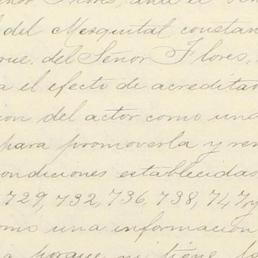 del Mezquital constan
que. del Señor Flores,
a el efecto de acreditar
ion del actor como una
para promoverla y ren
condiciones establecidas
729, 732, 736, 738, 747 y
omo una informacion
a porque ni tiene